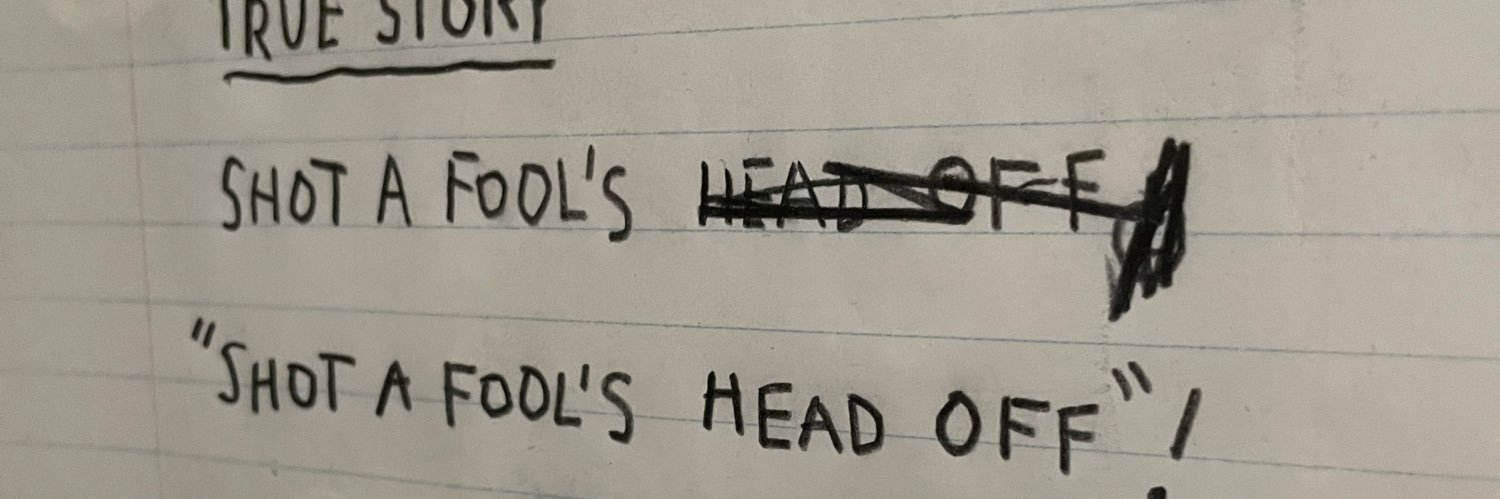 TRUE STORY
SHOT A FOOL'S HEAD OFF
"SHOT A FOOL'S HEAD OFF"!